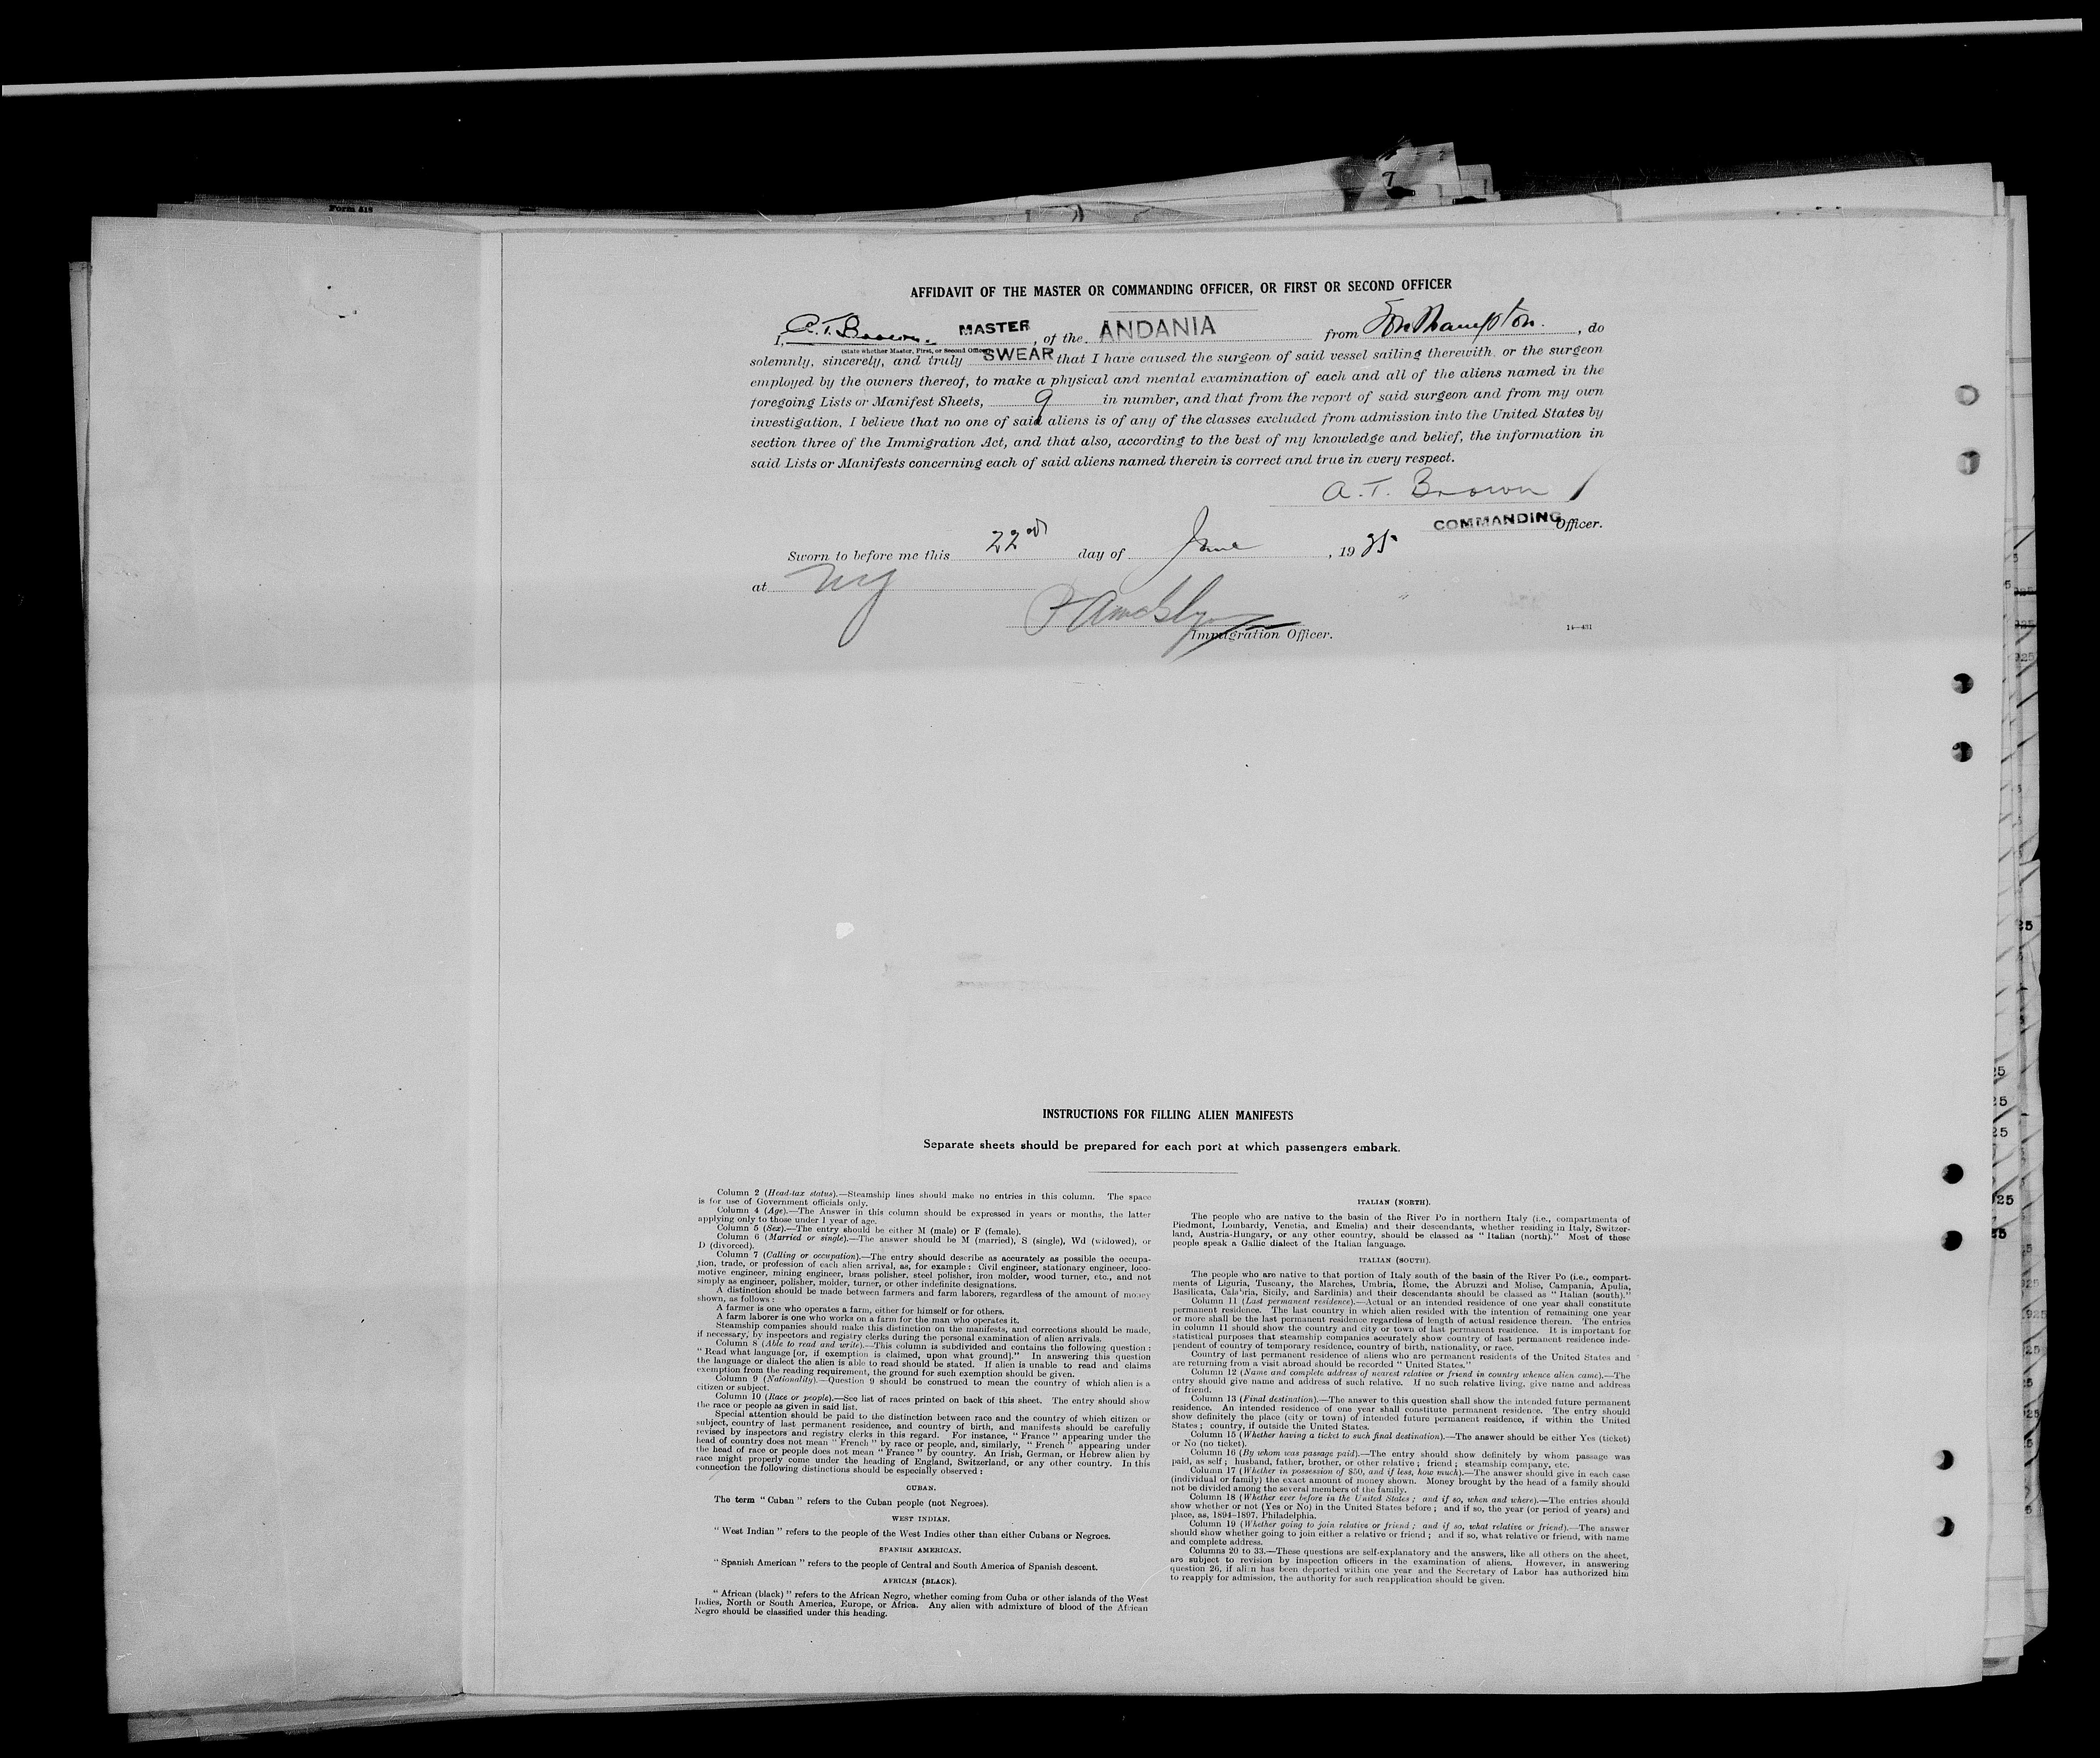 Form 518
AFFIDAVIT OF THE MASTER OR COMMANDING OFFICER, OR FIRST OR SECOND OFFICER
I, A. T. Brown. MASTER, of the ANDANIA from Southampton., do
(State whether Master, First, or Second Officer)
solemnly, sincerely, and truly SWEAR that I have caused the surgeon of said vessel sailing therewith, or the surgeon
employed by the owners thereof, to make a physical and mental examination of each and all of the aliens named in the
foregoing Lists or Manifest Sheets, 9 in number, and that from the report of said surgeon and from my own
investigation, I believe that no one of said aliens is of any of the classes excluded from admission into the United States by
section three of the Immigration Act, and that also, according to the best of my knowledge and belief, the information in
said Lists or Manifests concerning each of said aliens named therein is correct and true in every respect.
A. T. Brown
COMMANDING Officer.
Sworn to before me this 22nd day of June, 1925
at NY
Immigration Officer.
14—431
INSTRUCTIONS FOR FILLING ALIEN MANIFESTS
Separate sheets should be prepared for each port at which passengers embark.
Column 2 (Head-tax status).—Steamship lines should make no entries in this column. The space
is for use of Government officials only.
Column 4 (Age).—The Answer in this column should be expressed in years or months, the latter
applying only to those under 1 year of age.
Column 5 (Sex).—The entry should be either M (male) or F (female).
Column 6 (Married or single).—The answer should be M (married), S (single), Wd (widowed), or
D (divorced).
Column 7 (Calling or occupation).—The entry should describe as accurately as possible the occupa-
tion, trade, or profession of each alien arrival, as, for example: Civil engineer, stationary engineer, loco-
motive engineer, mining engineer, brass polisher, steel polisher, iron molder, wood turner, etc., and not
simply as engineer, polisher, molder, turner, or other indefinite designations.
A distinction should be made between farmers and farm laborers, regardless of the amount of money
shown, as follows:
A farmer is one who operates a farm, either for himself or for others.
A farm laborer is one who works on a farm for the man who operates it.
Steamship companies should make this distinction on the manifests, and corrections should be made,
if necessary, by inspectors and registry clerks during the personal examination of alien arrivals.
Column 8 (Able to read and write).—This column is subdivided and contains the following question:
"Read what language [or, if exemption is claimed, upon what ground]." In answering this question
the language or dialect the alien is able to read should be stated. If alien is unable to read and claims
exemption from the reading requirement, the ground for such exemption should be given.
Column 9 (Nationality).—Question 9 should be construed to mean the country of which alien is a
citizen or subject.
Column 10 (Race or people).—See list of races printed on back of this sheet. The entry should show
the race or people as given in said list.
Special attention should be paid to the distinction between race and the country of which citizen or
subject, country of last permanent residence, and country of birth, and manifests should be carefully
revised by inspectors and registry clerks in this regard. For instance, "France" appearing under the
head of country does not mean "French" by race or people, and, similarly, "French" appearing under
the head of race or people does not mean "France" by country. An Irish, German, or Hebrew alien by
race might properly come under the heading of England, Switzerland, or any other country. In this
connection the following distinctions should be especially observed:
CUBAN.
The term "Cuban" refers to the Cuban people (not Negroes).
WEST INDIAN.
"West Indian" refers to the people of the West Indies other than either Cubans or Negroes.
SPANISH AMERICAN.
"Spanish American" refers to the people of Central and South America of Spanish descent.
AFRICAN (BLACK).
"African (black)" refers to the African Negro, whether coming from Cuba or other islands of the West
Indies, North or South America, Europe, or Africa. Any alien with admixture of blood of the African
Negro should be classified under this heading.
ITALIAN (NORTH).
The people who are native to the basin of the River Po in northern Italy (i.e., compartments of
Piedmont, Lombardy, Venetia, and Emelia) and their descendants, whether residing in Italy, Switzer-
land, Austria-Hungary, or any other country, should be classed as "Italian (north)." Most of these
people speak a Gallic dialect of the Italian language.
ITALIAN (SOUTH).
The people who are native to that portion of Italy south of the basin of the River Po (i.e., compart-
ments of Liguria, Tuscany, the Marches, Umbria, Rome, the Abruzzi and Molise, Campania, Apulia,
Basilicata, Calabria, Sicily, and Sardinia) and their descendants should be classed as "Italian (south)."
Column 11 (Last permanent residence).—Actual or an intended residence of one year shall constitute
permanent residence. The last country in which alien resided with the intention of remaining one year
or more shall be the last permanent residence regardless of length of actual residence therein. The entries
in column 11 should show the country and city or town of last permanent residence. It is important for
statistical purposes that steamship companies accurately show country of last permanent residence inde-
pendent of country of temporary residence, country of birth, nationality, or race.
Country of last permanent residence of aliens who are permanent residents of the United States and
are returning from a visit abroad should be recorded "United States."
Column 12 (Name and complete address of nearest relative or friend in country whence alien came).—The
entry should give name and address of such relative. If no such relative living, give name and address
of friend.
Column 13 (Final destination).—The answer to this question shall show the intended future permanent
residence. An intended residence of one year shall constitute permanent residence. The entry should
show definitely the place (city or town) of intended future permanent residence, if within the United
States; country, if outside the United States.
Column 15 (Whether having a ticket to such final destination).—The answer should be either Yes (ticket)
or No (no ticket).
Column 16 (By whom was passage paid).—The entry should show definitely by whom passage was
paid, as self; husband, father, brother, or other relative; friend; steamship company, etc.
Column 17 (Whether in possession of $50, and if less, how much).—The answer should give in each case
(individual or family) the exact amount of money shown. Money brought by the head of a family should
not be divided among the several members of the family.
Column 18 (Whether ever before in the United States; and if so, when and where).—The entries should
show whether or not (Yes or No) in the United States before; and if so, the year (or period of years) and
place, as, 1894-1897, Philadelphia.
Column 19 (Whether going to join relative or friend; and if so, what relative or friend).—The answer
should show whether going to join either a relative or friend; and if so, what relative or friend, with name
and complete address.
Columns 20 to 33.—These questions are self-explanatory and the answers, like all others on the sheet,
are subject to revision by inspection officers in the examination of aliens. However, in answering
question 26, if alien has been deported within one year and the Secretary of Labor has authorized him
to reapply for admission, the authority for such reapplication should be given.